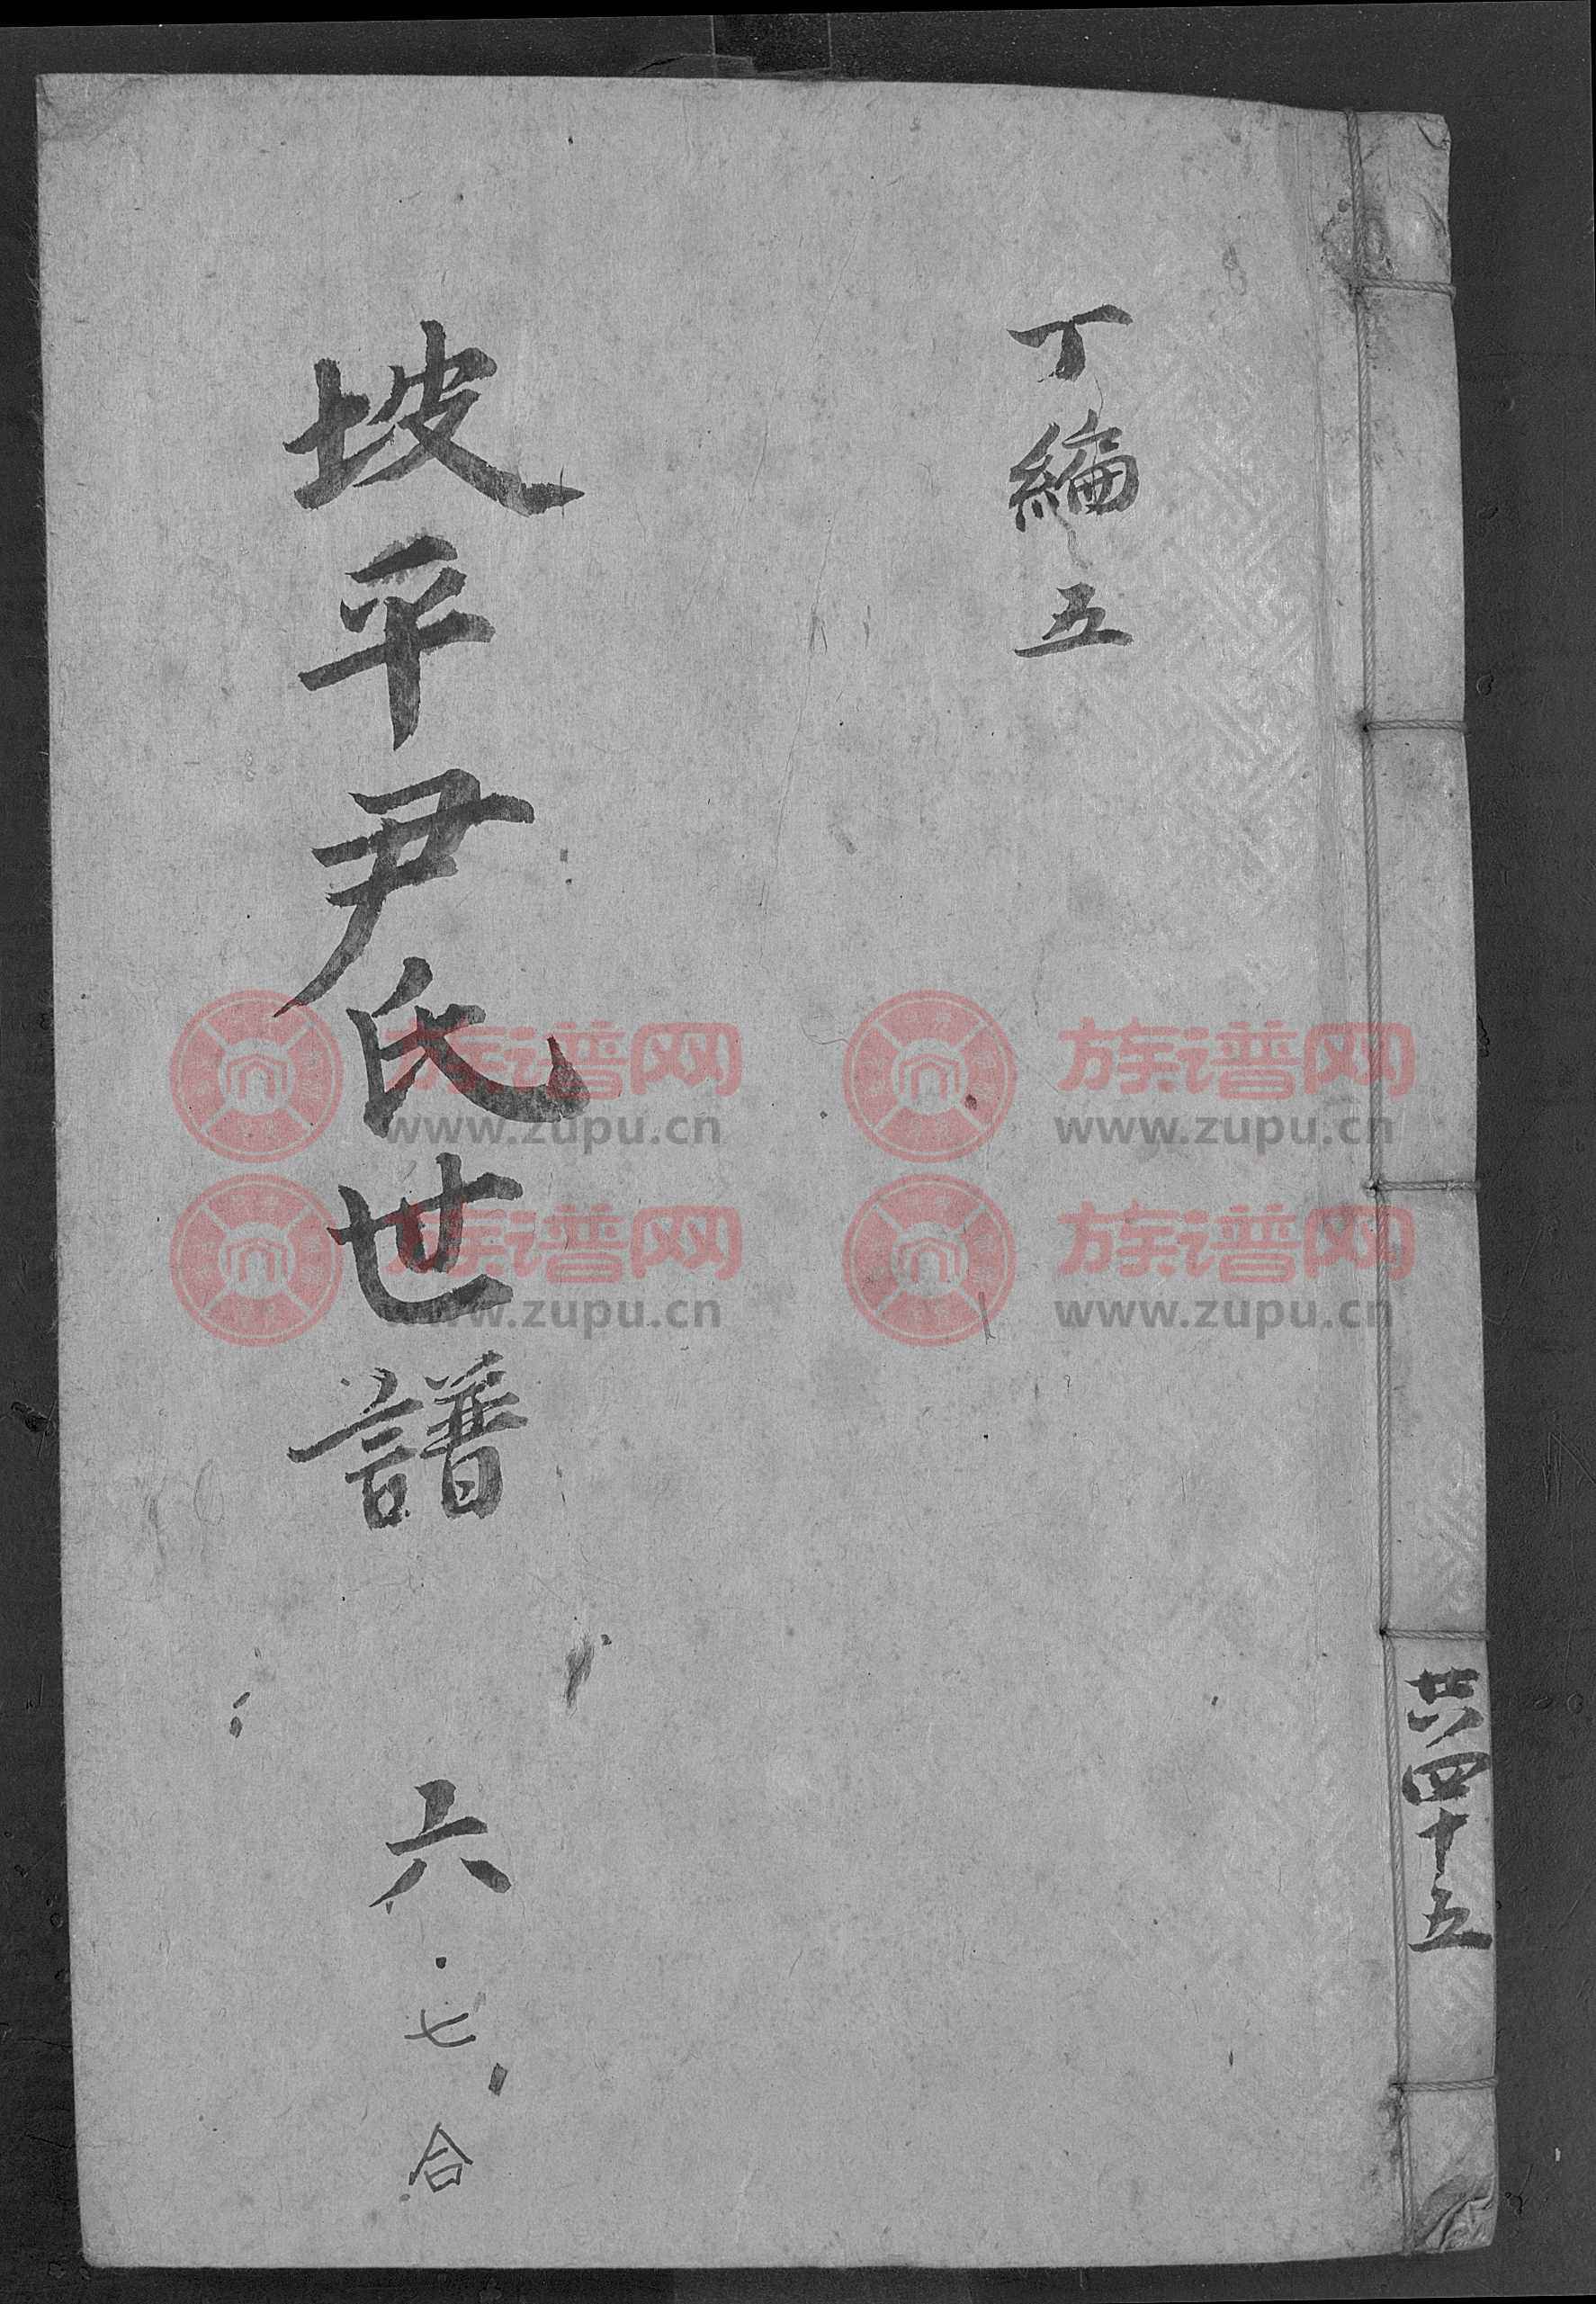 丁編五
坡平尹氏世譜 六·七合
共四十五
族谱网 族谱网
www.zupu.cn www.zupu.cn
族谱网 族谱网
www.zupu.cn www.zupu.cn